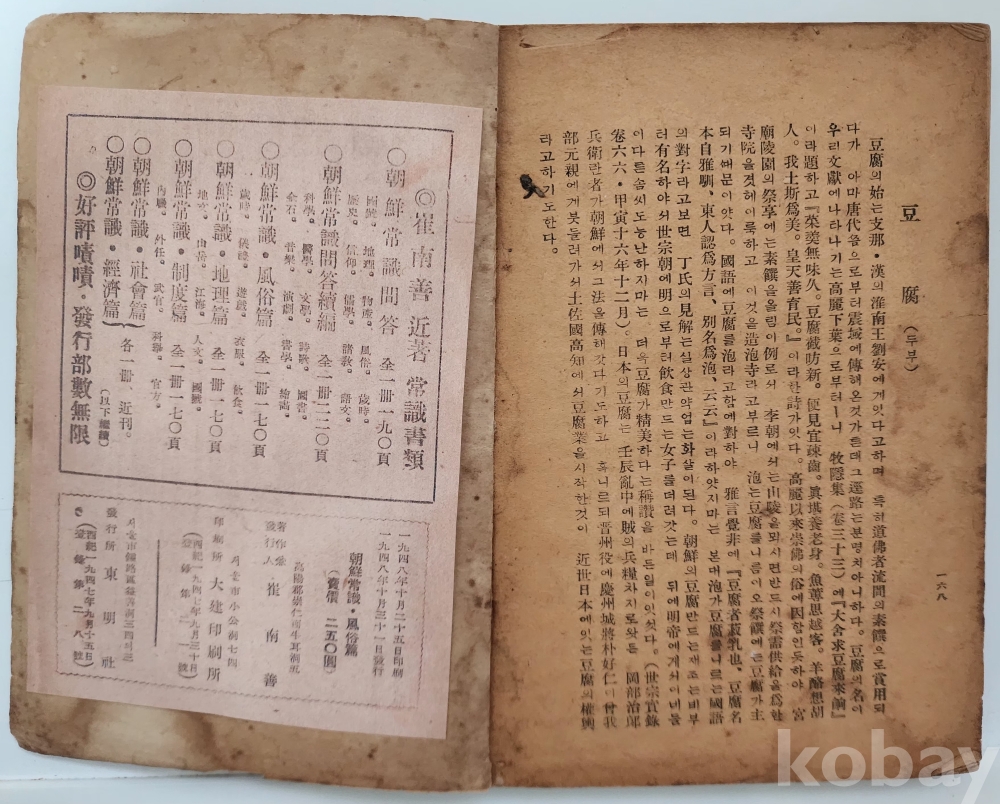 一六八
豆腐 (두부)
豆腐의 始는 支那·漢의 淮南王劉安에게잇다고하며 특히道佛者流間의素饌으로賞用되
다가 아마唐代쯤으로부터震域에傳해온것가튼데그逕路는분명치아니하다。豆腐의名이
우리文獻에나타나기는高麗下葉으로부터—니 牧隱集(卷三十三)에『大舍求豆腐來餉』
이라題하고『菜羹無味久。豆腐截肪新。便見宜疎齒。眞堪養老身。魚蓴思越客。羊酪想胡
人。我土斯爲美。皇天善育民。』이라한詩가잇다。高麗以來崇佛의俗에因함인듯하야 宮
廟陵園의祭享에는素饌을올림이例로서 李朝에서는山陵을뫼시면반드시祭需供給을爲한
寺院을졋헤이룩하고 이것을造泡寺라고부르니 泡는豆腐를니름이오祭饌에는豆腐가主
되기때문이엇다。國語에豆腐를泡라고함에對하야 雅言覺非에『豆腐者菽乳也、豆腐名
本自雅馴、東人認爲方言、別名爲泡、云云』이라하얏지마는 본대泡가豆腐를니르는國語
의對字라고보면 丁氏의見解는실상관약업는화살이된다。朝鮮의豆腐만드는재조는비부
터有名하야서世宗朝에明으로부터飮食만드는女子를더려갓는데 뒤에明帝에게서이네들
이다른솜씨도능난하지마는 더욱豆腐가精美하다는稱讚을 바든일이잇섯다。(世宗實錄
卷六六·甲寅十六年十二月)。日本의豆腐는 壬辰亂中에賊의兵糧차지로왓든 岡部治郞
兵衛란者가朝鮮에서그法을傳해갓다기도하고 혹니르되晋州役에慶州城將朴好仁이曾我
部元親에게붓들려가서土佐國高知에서豆腐業을시작한것이 近世日本에잇는豆腐의權輿
라고하기도한다。
◎崔南善近著 常識書類
○朝鮮常識問答 全一冊一九〇頁
國號。地理。物產。風俗。歲時。
歷史。信仰。儒學。諸敎。語文。
○朝鮮常識問答續編 全二冊二二〇頁
科學。醫學。文學。詩歌。圖書。
金石。音樂。演劇。書學。繪畵。
○朝鮮常識·風俗篇 全一冊一七〇頁
歲時。儀禮。遊戲。衣服。飮食。
○朝鮮常識·地理篇 全一冊一七〇頁
地文。山岳。江海。人文。國號。
○朝鮮常識·制度篇 全一冊一七〇頁
內職。外任。武官。科擧。官方。
○朝鮮常識·社會篇
○朝鮮常識·經濟篇 各一冊、近刊。
(以下繼續)
◎好評嘖嘖·發行部數無限
一九四八年十月二十五日印刷
一九四八年十月三十一日發行
朝鮮常識·風俗篇
(賣價 二五〇圓)
高陽郡崇仁面牛耳洞
著作兼發行人 崔南善
서울市小公洞七四
印刷所 大建印刷所
發行所 東明社
(西紀一九四七年九月十五日
登錄第二八號)
kobay